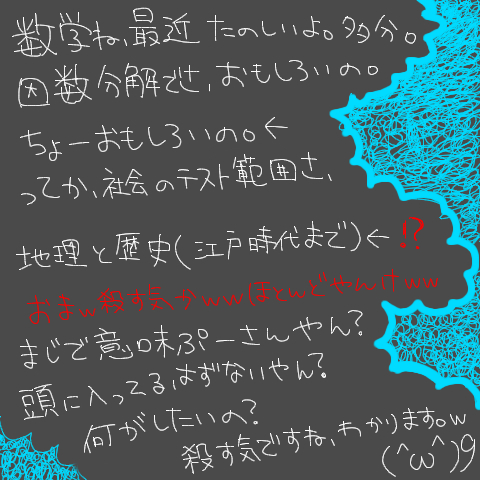 数学ね、最近たのしいよ。多分。
因数分解でさ、おもしろいの。
ちょーおもしろいの。←
ってか、社会のテスト範囲さ、
地理と歴史(江戸時代まで)←!?
おまw殺す気かwwほとんどやんけww
まじで意味ぷーさんやん?
頭に入ってるはずないやん?
何がしたいの?
殺す気ですね、わかります。w
(^ω^)9